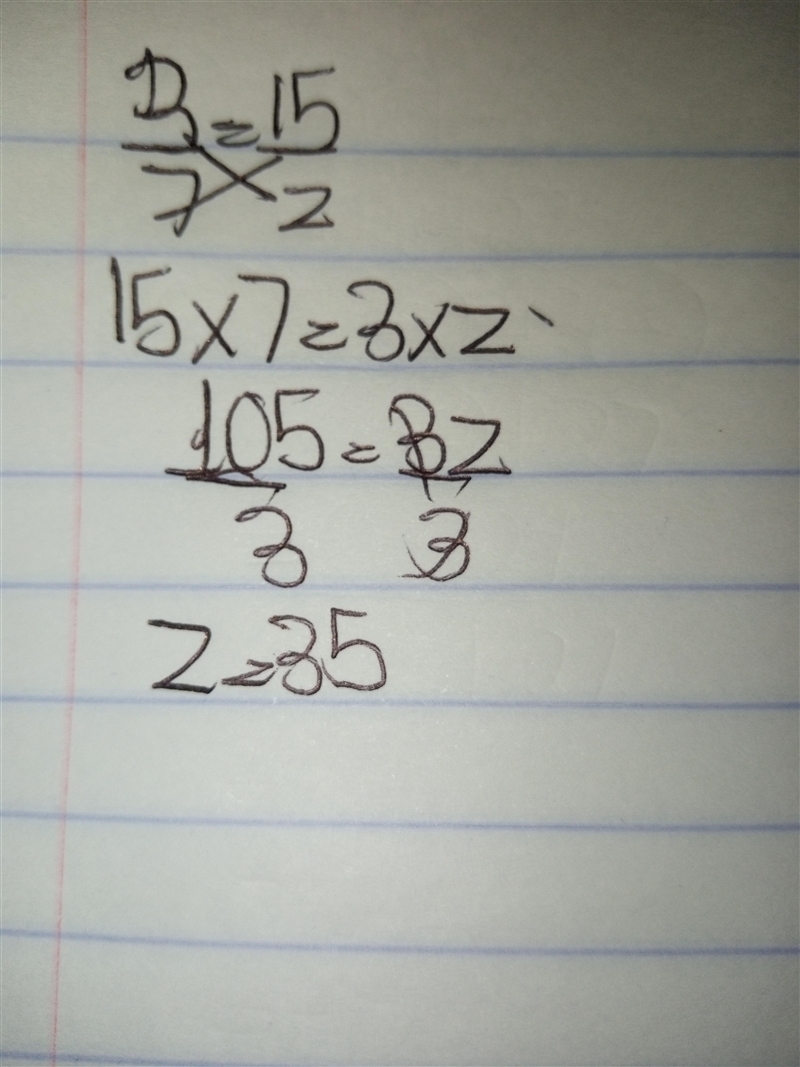 3/7 = 15/z
15x7=3xz
105/3 = 3z/3
z=35